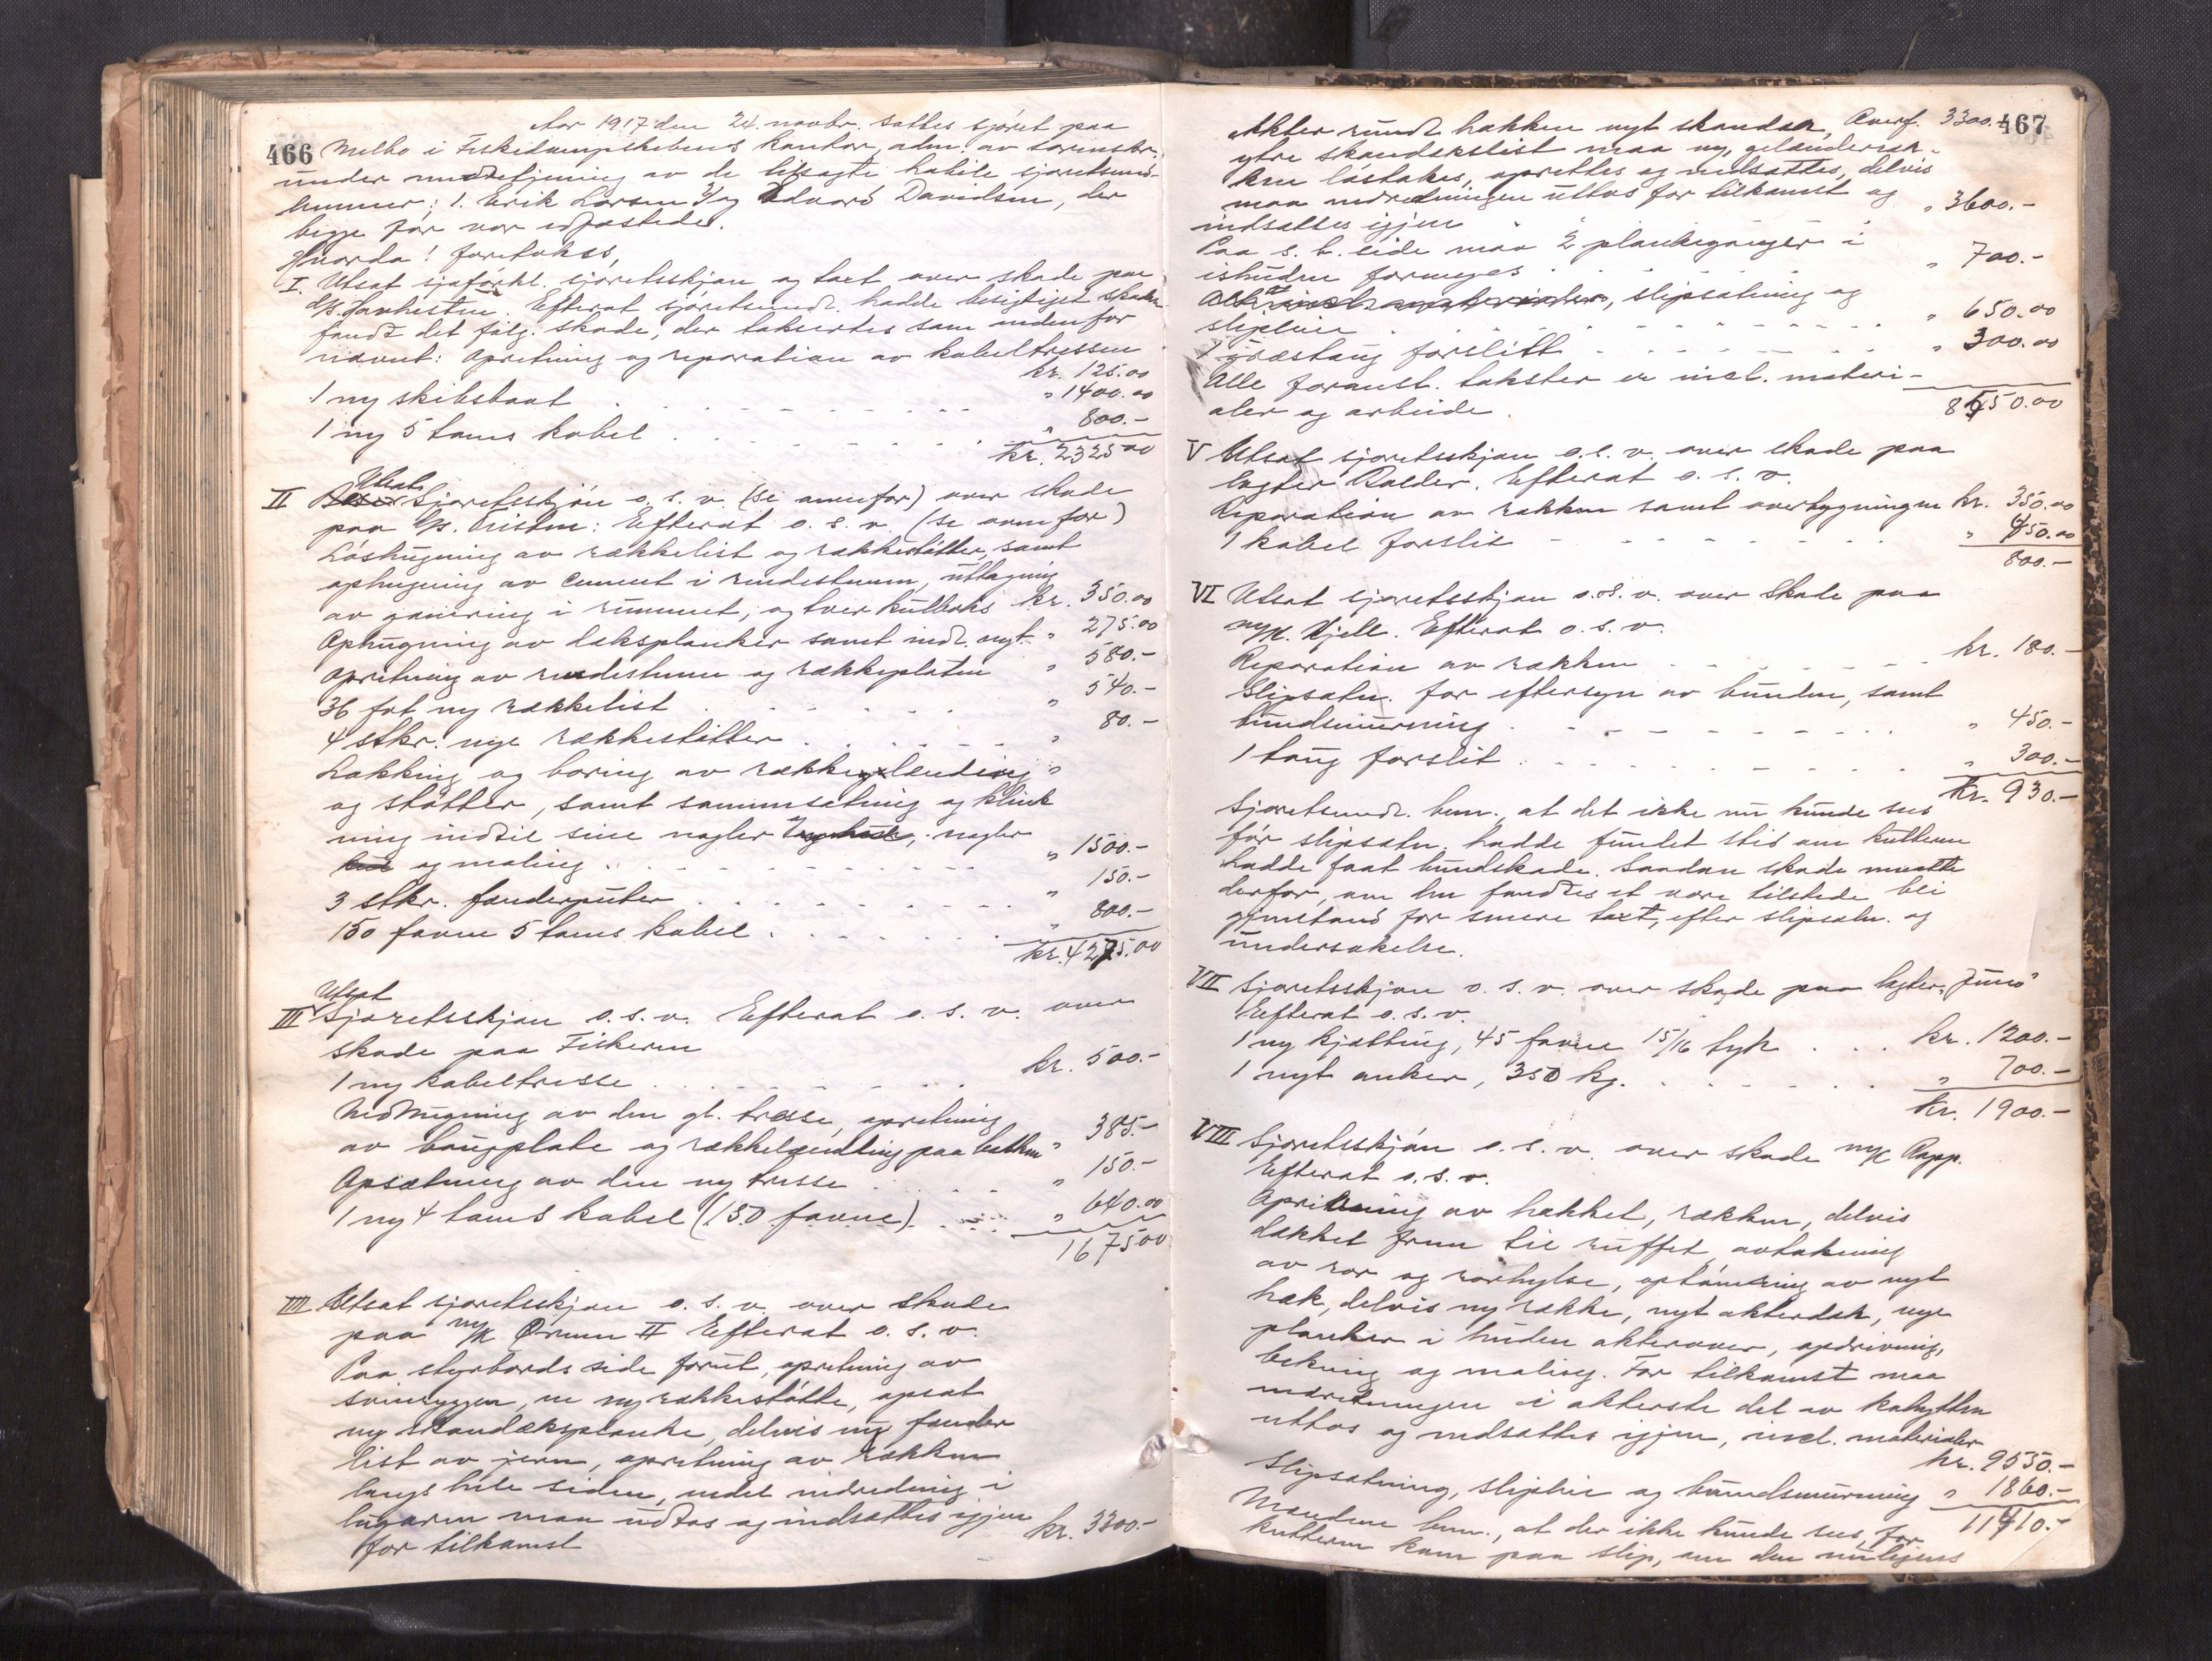 466
Aar 1917 den 24. novbr. sattes sjøret paa
Melbo i Fiskedampskibens kontor, adm. av sorenskr.
under medbetjening av de tilsagte habile sjøretsmed-
lemmer; 1. Erik Larsen 2/ og Edvard Davidsen, der
begge før var edfæstede.
Hvorda! foretokes,
I. Utsat sjøforkl. sjøretsskjøn og taxt over skade paa
d/s. Havhesten. Efterat sjøretsmedl. hadde besigtiget skaden
fandt det følg. skade, der taksertes som nedenfor
nævnt: Opretning og reparation av kabeltrossen
kr. 125.00
1 ny skibsbaat . . . . . " 1400.00
1 ny 5 toms kabel . . . . . " 800.-
kr. 2325 00
II Utsat Sjøretsskjøn o. s. v. (se ovenfor) over skade
paa d/s. Øisten: Efterat o. s. v. (se ovenfor)
Løshugning av rækkelist og rækkestøtter, samt
ophugning av cement i rendestenen, uttagning
av garnering i rummet, og tver kulboks kr. 350.00
Ophugning av dæksplanker samt indl. nyt " 275.00
Opretning av rendestenen og rækkeplaten " 580.-
36 fot ny rækkelist . . . . . " 540.-
4 stkr. nye rækkestøtter . . . . . " 80.-
Lokking og boring av rækkelænding "
og støtter, samt sammensætning og klink
ning indtil sine nagler , nagler
og maling . . . . . " 1500.-
3 stkr. fenderputer . . . . . " 150.-
150 favne 5 toms kabel . . . . . " 800.-
kr. 4275.00
III Utsat Sjøretsskjøn o. s. v. Efterat o. s. v. over
skade paa Fiskeren
1 ny kabeltrosse . . . . . kr. 500.-
Nedhugning av den gl. trosse, opretning
av baugplate og rækkelænding paa bakken " 385.-
Opsætning av den ny trosse . . . . . " 150.-
1 ny 4 toms kabel (150 favne) . . . . . " 640.00
1675 00
IIII Utsat sjøretsskjøn o. s. v. over skade
paa m/k Ørnen II Efterat o. s. v.
Paa styrbords side forut, opretning av
svineryggen, en ny rækkestøtte, opsat
ny skandæksplanke, delvis ny fender
list av jern, opretning av rækken
langs hele siden, endel indredning i
lugaren maa udtas og indsættes igjen
for tilkomst kr. 3300.-
467
Akter rundt hækken nyt skandæk, Overf. 3300.-
ytre skandækslist maa ny, gelænderræk-
ken løstakes, oprettes og nedsættes, delvis
maa indredningen uttas for tilkomst og
indsættes igjen . " 3600.-
Paa s. b. side maa 2 plankeganger i
ishuden fornyes . . . . . " 700.-
slipsætning og
slipleie . . . . . " 650.00
1 græstaug forslitt . . . . . " 300.00
Alle foranst. takster er incl. materi-
aler og arbeide . 8550.00
V Utsat sjøretsskjøn o. s. v. over skade paa
lægter Balder. Efterat o. s. v.
Reparation av rækken samt overbygningen kr. 350.00
1 kabel forslit . . . . . " 450.00
800.-
VI Utsat sjøretsskjøn o. s. v. over skade paa
m/k. Kjell. Efterat o. s. v.
Reparation av rækken . . . . . kr. 180.-
Slipsætn. for eftersyn av bunden, samt
bundsmurning . . . . . " 450.-
1 taug forslit . . . . . " 300.-
kr. 930.-
Sjøretsmedl. bem. at det ikke nu kunde sees
før slipsætn. hadde fundet sted om kutteren
hadde faat bundskade. Saadan skade maatte
derfor, om den fandtes at være tilstede bli
gjenstand for senere taxt, efter slipsætn. og
undersøkelse.
VII Sjøretsskjøn o. s. v. over skade paa lægter „Juno"
Efterat o. s. v.
1 ny kjætting, 45 favne 15/16 tyk . . . kr. 1200.-
1 nyt anker, 350 kg. . . . . . " 700.-
kr. 1900.-
VIII Sjøretsskjøn o. s. v. over skade m/k Rapp.
Efterat o. s. v.
Opretning av hækket, rækken, delvis
dækket frem til ruffet, avtakning
av ror og rorhylse, optømring av nyt
hæk, delvis ny række, nyt akterdæk, nye
planker i huden akterover, opdrivning,
bekning og maling. For tilkomst maa
indredningen i akterste del av kahytten
uttas og indsættes igjen, incl. materialer
kr. 9550.-
Slipsætning, slipleie og bundsmurning " 1860.-
11410.-
Mændene bem., at der ikke kunde sees, før
kutteren kom paa slip, om den muligens